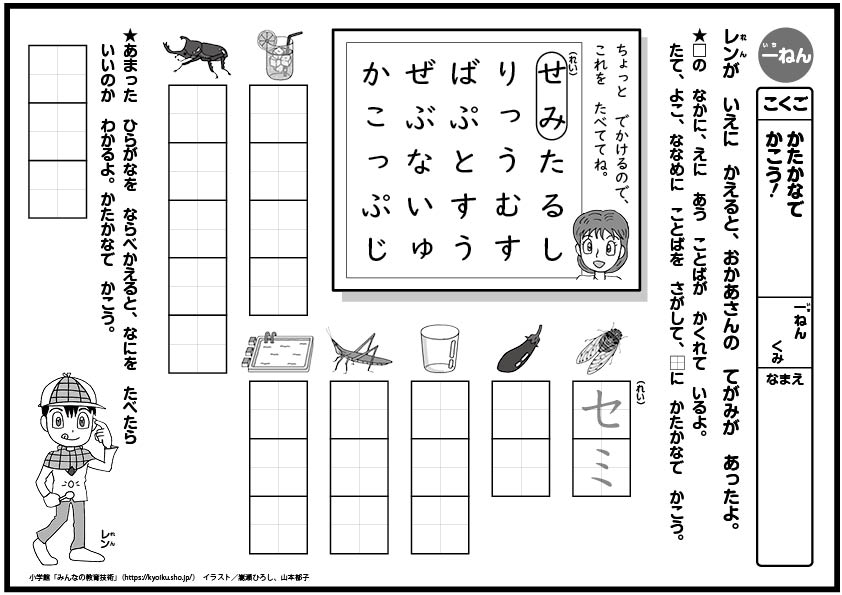 一ねん
いち
こくご
かたかなで
かこう！
一ねん　くみ
いち
なまえ
レンが　いえに　かえると、おかあさんの　てがみが　あったよ。
れん
★□の　なかに、えに　あう　ことばが　かくれて　いるよ。
たて、よこ、ななめに　ことばを　さがして、田に　かたかなで　かこう。
ちょっと　でかけるので、
これを　たべててね。
（れい）
せみたるし
りっうむす
ばぷとすう
ぜぶないゅ
かこっぷじ
（れい）
セミ
★あまった　ひらがなを　ならべかえると、なにを　たべたら
いいのか　わかるよ。かたかなで　かこう。
レン
れん
小学館「みんなの教育技術」（https://kyoiku.sho.jp/）　イラスト／廣瀬ひろし、山本郁子